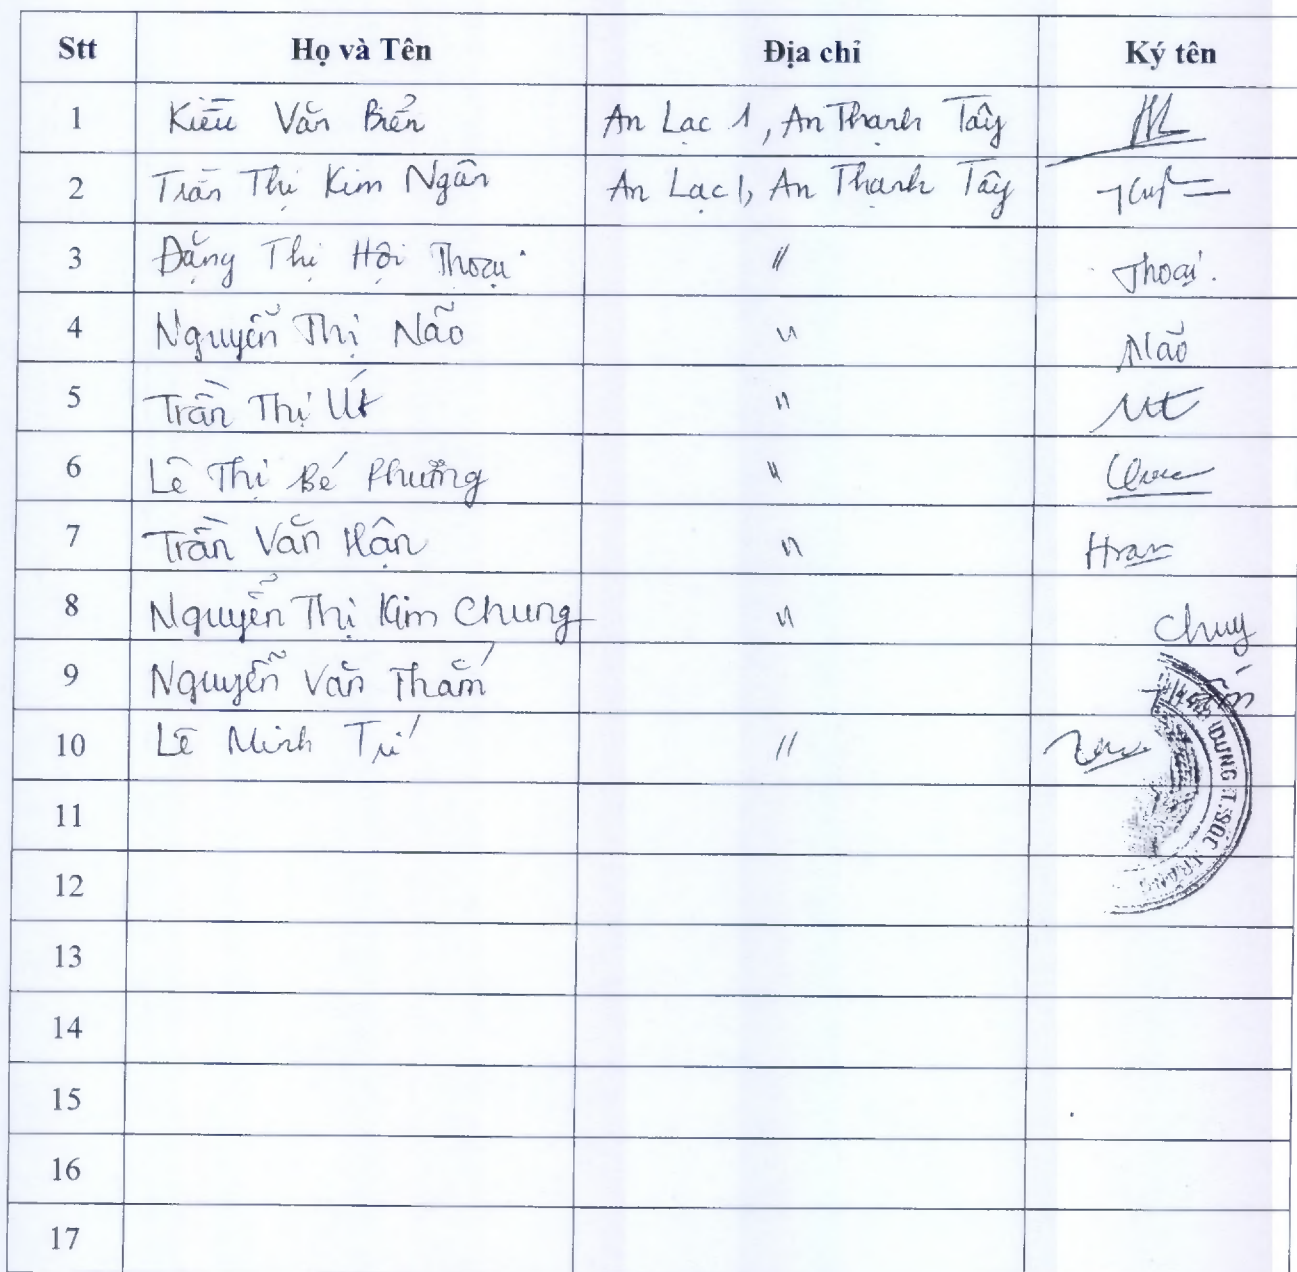 Stt Họ và Tên Địa chỉ Ký tên
1 Kiều Văn Biển An Lạc 1, An Thạnh Tây
2 Trần Thị Kim Ngân An Lạc 1, An Thạnh Tây
3 Đặng Thị Hội Thoại " Thoại.
4 Nguyễn Thị Não " Não
5 Trần Thị Út " Út
6 Lê Thị Bé Phượng "
7 Trần Văn Hận "
8 Nguyễn Thị Kim Chung "
9 Nguyễn Văn Thắm
10 Lê Minh Trí "
DUNG T.SÓC TRĂNG
11
12
13
14
15
16
17